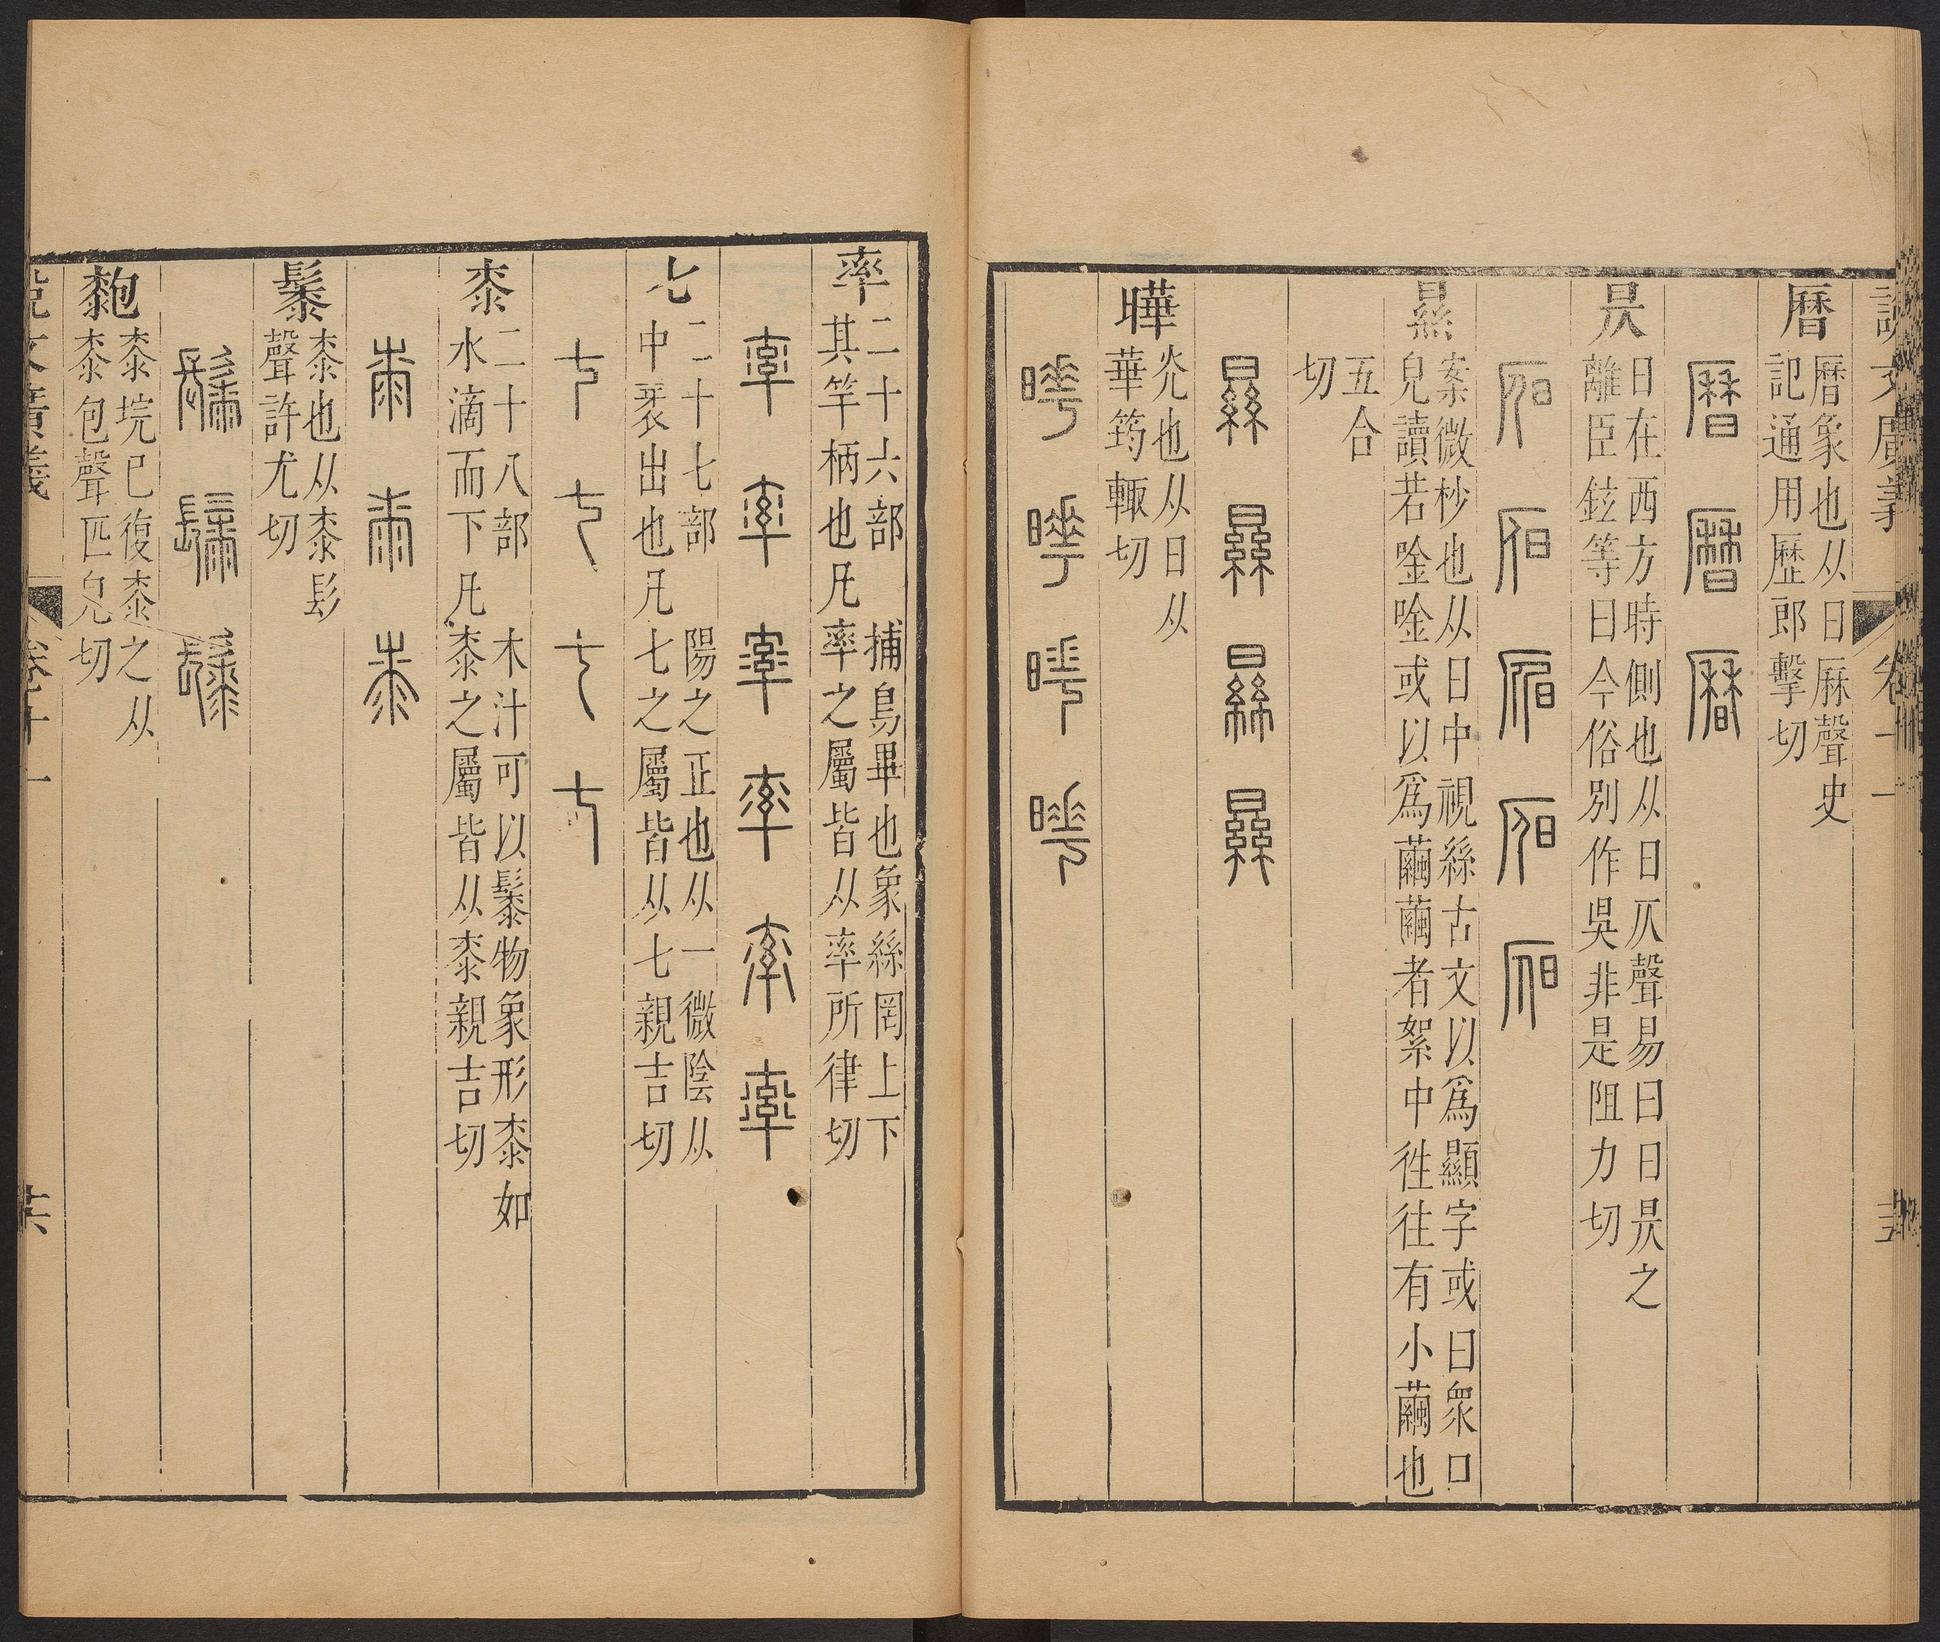 說文廣義 卷十一
曆
曆象也从日厤聲史
記通用歷郎擊切
曆曆曆
昃
日在西方時側也从日仄聲易曰日昃之
離臣鉉等曰今俗別作吳非是阻力切
㬎
案微杪也从日中視絲古文以爲顯字或曰衆口
皃讀若唫唫或以爲繭繭者絮中徃往有小繭也
五合
切
㬎㬎㬎㬎
曄
灮也从日从
華筠輙切
曄曄曄曄
率
二十六部 捕鳥畢也象絲罔上下
其竿柄也凡率之屬皆从率所律切
率率率率率率
七
二十七部 陽之正也从一微陰从
中衺出也凡七之屬皆从七親吉切
七七七七
桼
二十八部 木汁可以髹物象形桼如
水滴而下凡桼之屬皆从桼親吉切
桼桼桼
髹
桼也从桼髟
聲許尤切
䰍
桼垸已復桼之从
桼包聲匹皃切
說文廣義 卷十一 共